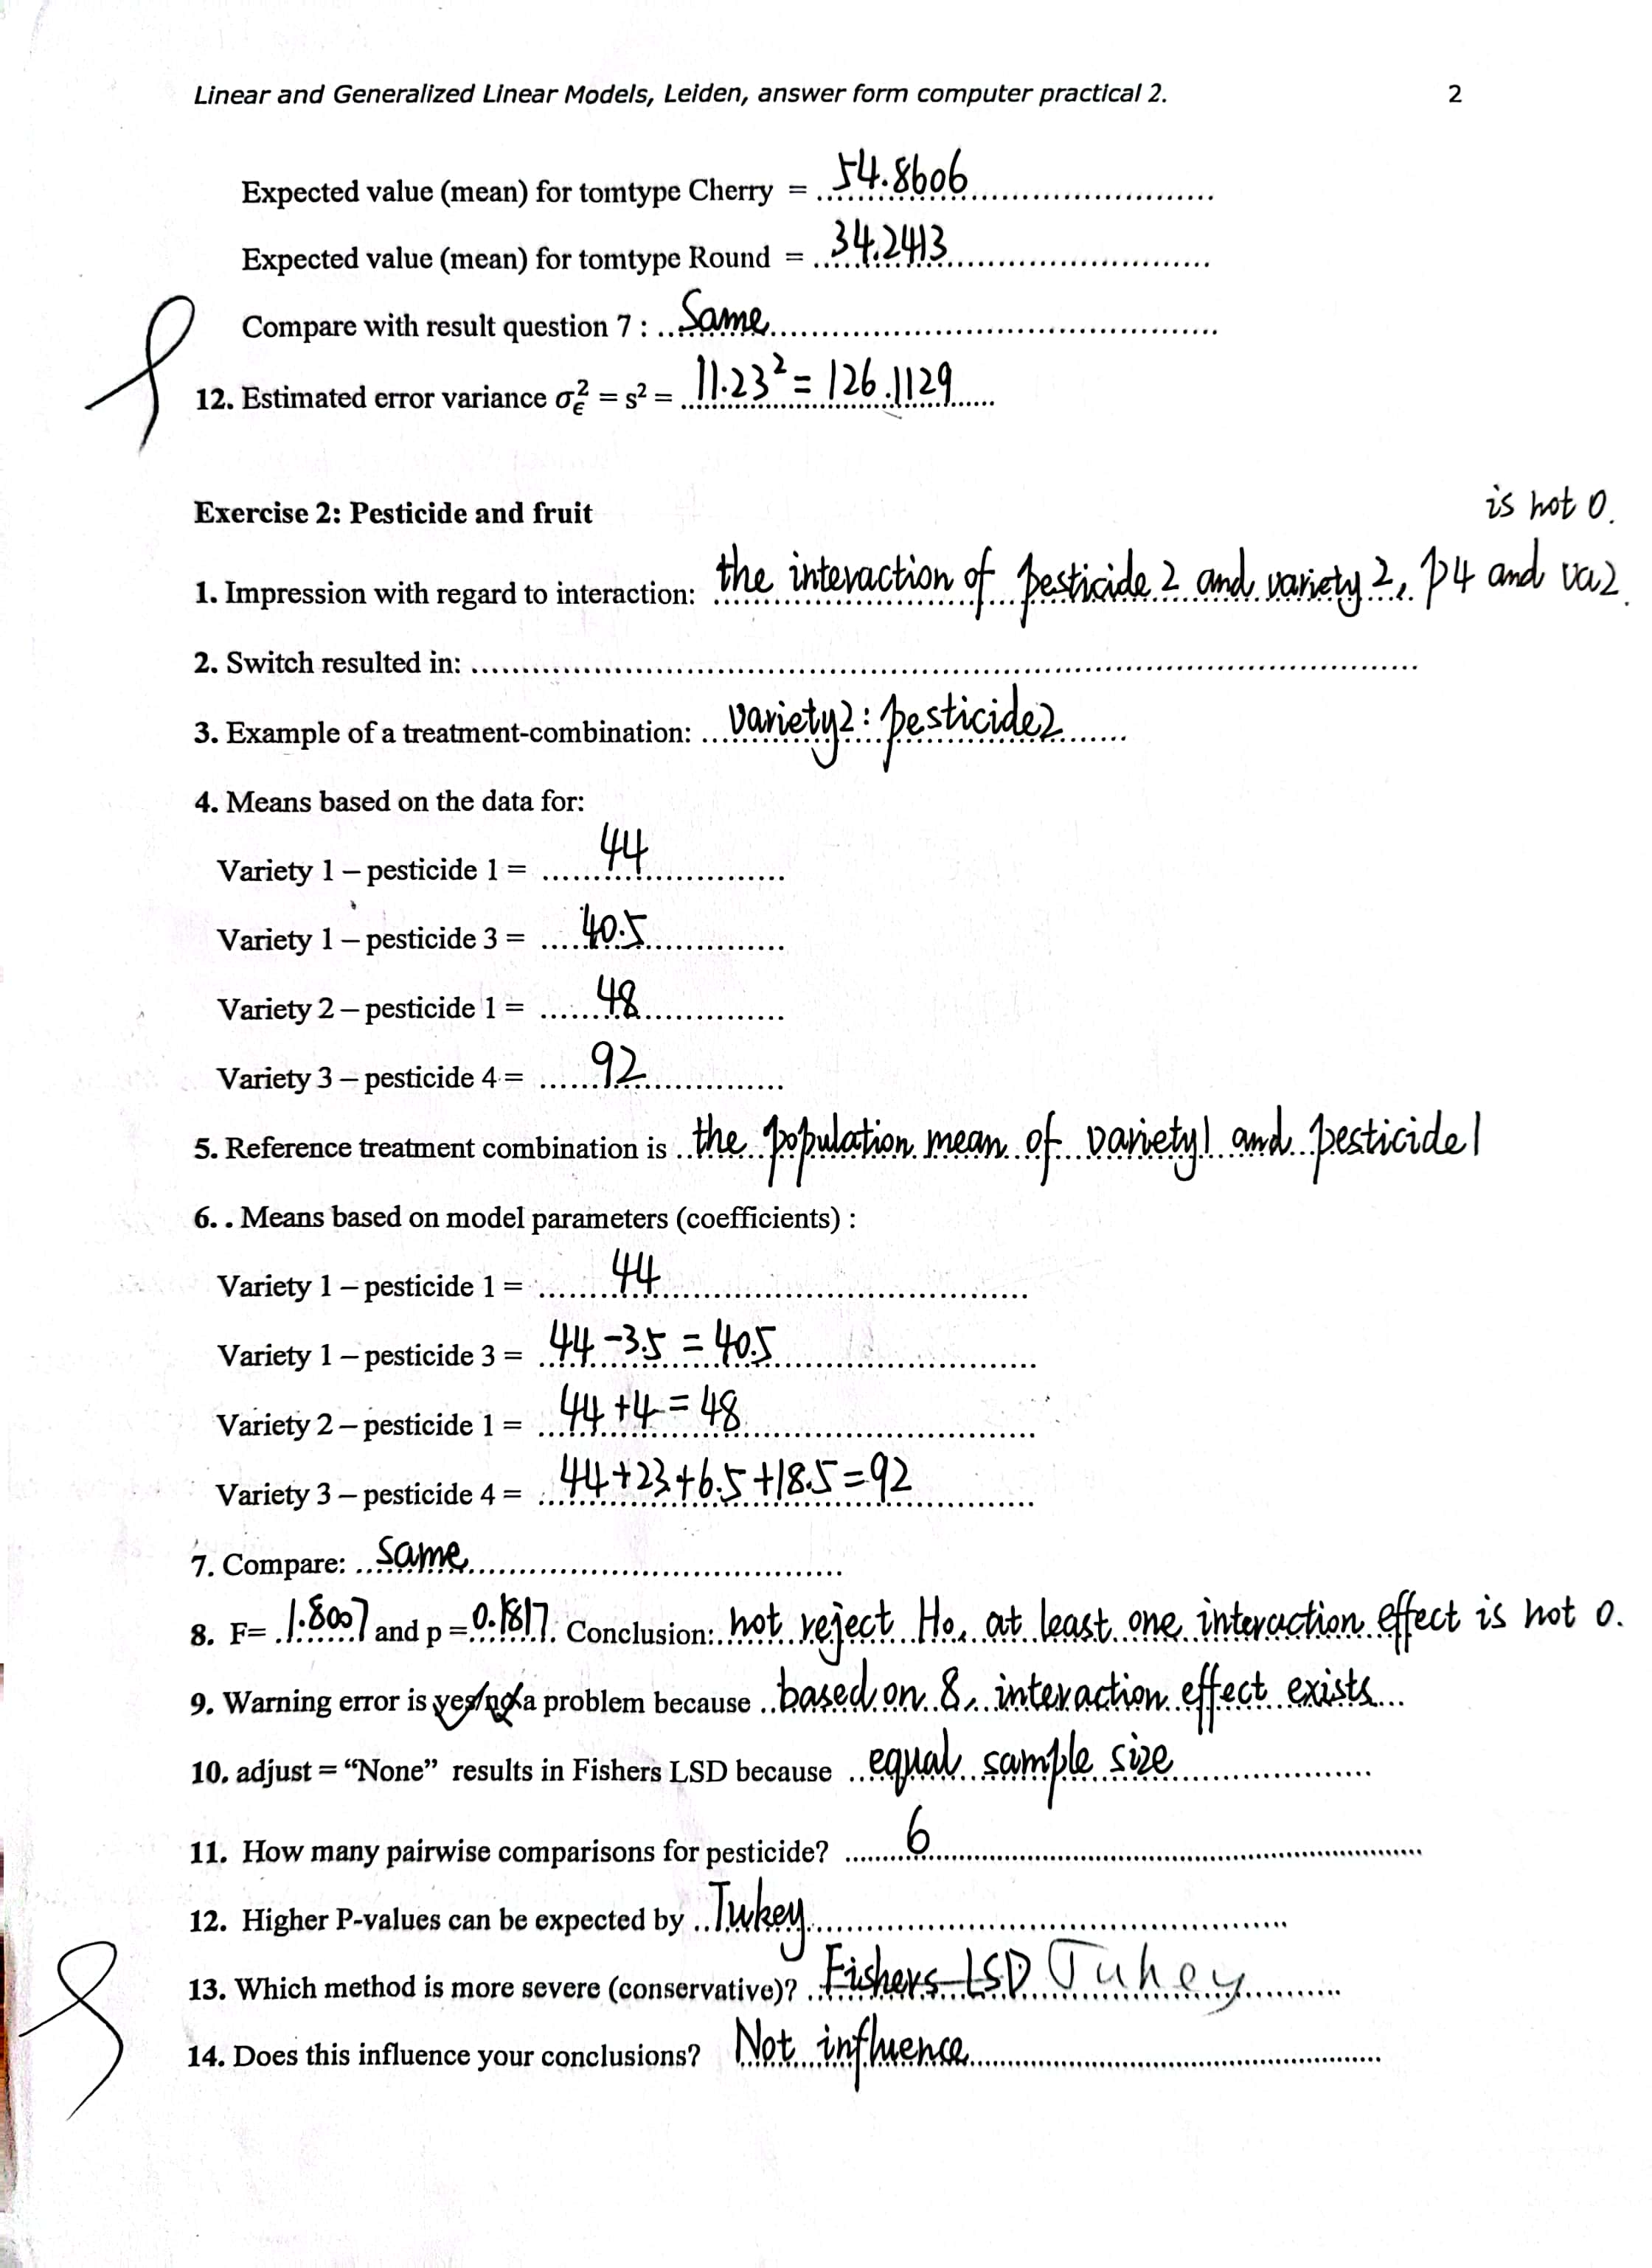 Linear and Generalized Linear Models, Leiden, answer form computer practical 2. 2
Expected value (mean) for tomtype Cherry = 54.8606
Expected value (mean) for tomtype Round = 34.2413
Compare with result question 7 : Same
12. Estimated error variance σ²ϵ = s² = 11.23² = 126.1129
Exercise 2: Pesticide and fruit
is not 0.
1. Impression with regard to interaction: the interaction of pesticide 2 and variety 2, p4 and va2.
2. Switch resulted in:
3. Example of a treatment-combination: variety2: pesticide2
4. Means based on the data for:
Variety 1 – pesticide 1 = 44
Variety 1 – pesticide 3 = 40.5
Variety 2 – pesticide 1 = 48
Variety 3 – pesticide 4 = 92
5. Reference treatment combination is the population mean of variety1 and pesticide1
6. . Means based on model parameters (coefficients) :
Variety 1 – pesticide 1 = 44
Variety 1 – pesticide 3 = 44 -3.5 = 40.5
Variety 2 – pesticide 1 = 44 +4 = 48
Variety 3 – pesticide 4 = 44+23+6.5+18.5=92
7. Compare: same
8. F= 1.8007 and p = 0.1817. Conclusion: not reject Ho, at least one interaction effect is not 0.
9. Warning error is yes/no a problem because based on 8, interaction effect exists
10. adjust = “None” results in Fishers LSD because equal sample size
11. How many pairwise comparisons for pesticide? 6
12. Higher P-values can be expected by Tukey
13. Which method is more severe (conservative)? Fishers LSD Tukey
14. Does this influence your conclusions? Not influence